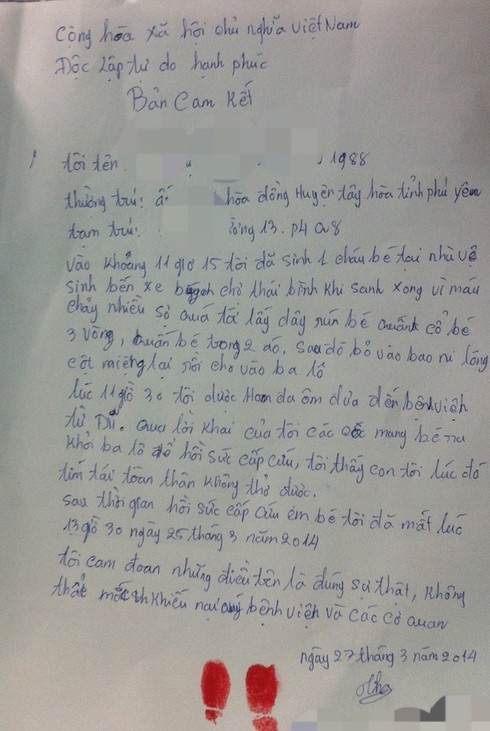 Cộng hòa xã hội chủ nghĩa Việt Nam
Độc lập tự do hạnh phúc
Bản Cam Kết
tôi tên , 1988
thường trú: ấ hòa đồng Huyện tây hòa tỉnh phú yên
tạm trú: ờng 13. p4 Q8
vào khoảng 11 giờ 15 tôi đã sinh 1 cháu bé tại nhà vệ
sinh bến xe chở thái bình khi sanh xong vì máu
chảy nhiều sợ quá tôi lấy dây rún bé quấn cổ bé
3 vòng, quấn bé trong 2 áo. Sau đó bỏ vào bao ni lông
cột miệng lại rồi cho vào ba lô
lúc 11 giờ 30 tôi được đưa đến bệnh viện
từ Dũ. Qua lời khai của tôi các mang bé ra
khỏi ba lô để hồi sức cấp cứu, tôi thấy con tôi lúc đó
tím tái toàn thân không thở được.
sau thời gian hồi sức cấp cứu em bé tôi đã mất lúc
13 giờ 30 ngày 25 tháng 3 năm 2014
tôi cam đoan những điều trên là đúng sự thật, không
thắc mắc khiếu nại quý bệnh viện và các cơ quan
ngày 27 tháng 3 năm 2014